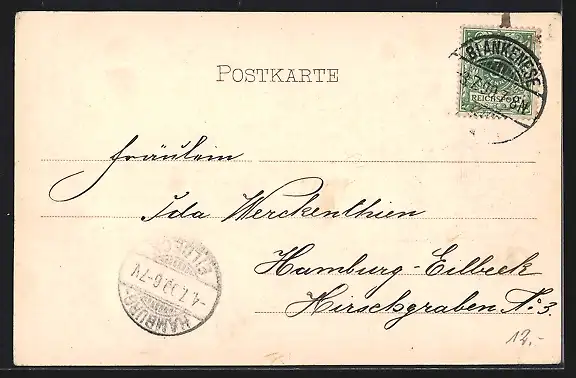 POSTKARTE
BLANKENESE
REICHSPOST
Fräulein
Ida Werckenthien
Hamburg-Eilbeck
Hirschgraben No. 3.
HAMBURG
12.-